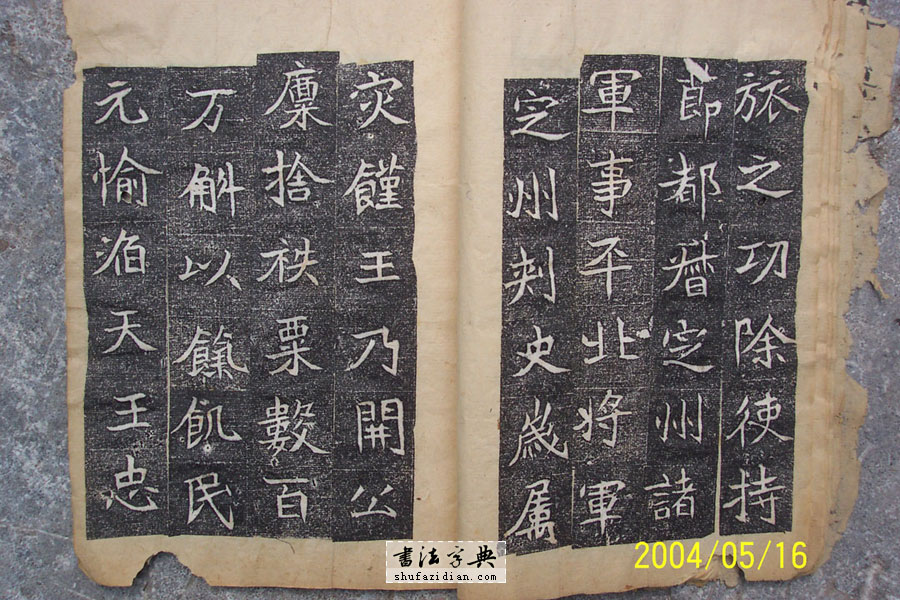 旅之功除使持
節都督定州諸
軍事平北将軍
定州刾史嵗属
灾饉王乃開公
廩捨秩粟數百
万斛以餼飢民
元愉滔天王忠
2004/05/16
書法字典
shufazidian.com